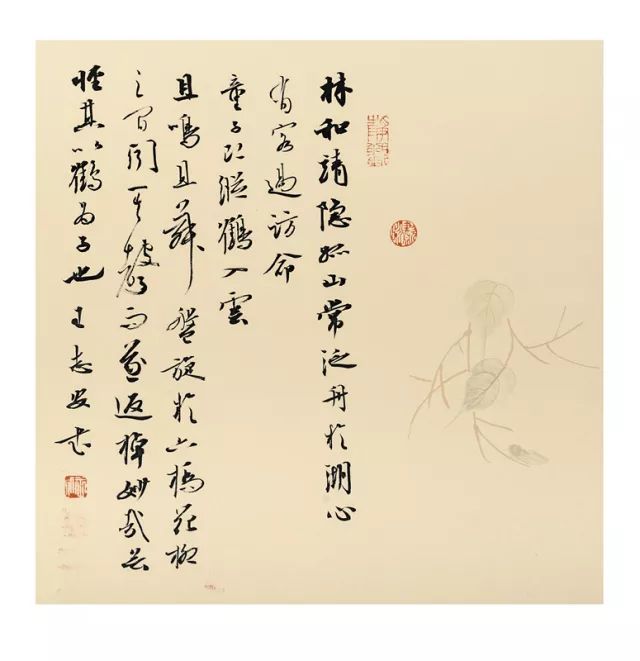 林和靖隐孤山常泛舟於湖心
有客過訪命
童子縱鶴入雲
且鳴且舞盤旋於六橋花柳
之間聞其聲而返棹妙哉無
怪其以鶴為子也 王志安書